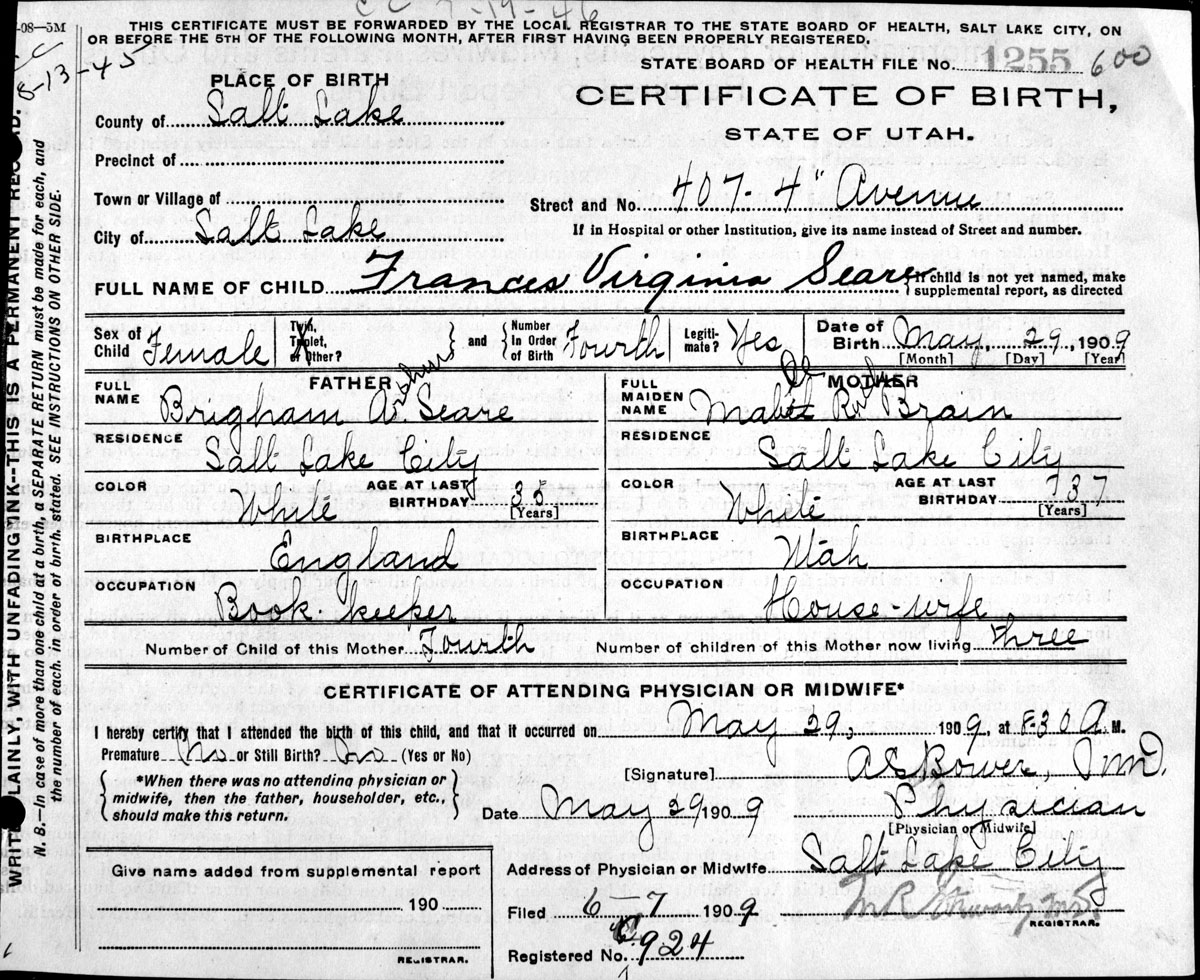 CC 7-19-46
-08-5M
THIS CERTIFICATE MUST BE FORWARDED BY THE LOCAL REGISTRAR TO THE STATE BOARD OF HEALTH, SALT LAKE CITY, ON
OR BEFORE THE 5TH OF THE FOLLOWING MONTH, AFTER FIRST HAVING BEEN PROPERLY REGISTERED.
CC 8-13-45
STATE BOARD OF HEALTH FILE No. 1255 600
PLACE OF BIRTH
CERTIFICATE OF BIRTH,
STATE OF UTAH.
County of Salt Lake
Precinct of
Town or Village of
Street and No. 407- 4" Avenue
City of Salt Lake
If in Hospital or other Institution, give its name instead of Street and number.
FULL NAME OF CHILD Frances Virginia Seare
{If child is not yet named, make
supplemental report, as directed
Sex of Child Female
Twin, Triplet, or Other?
and
Number In Order of Birth Fourth
Legitimate? Yes
Date of Birth May, 29, 1909
[Month] [Day] [Year]
FATHER
FULL NAME Brigham A. Seare
RESIDENCE Salt Lake City
COLOR White
AGE AT LAST BIRTHDAY 35
[Years]
BIRTHPLACE England
OCCUPATION Book-keeper
MOTHER
FULL MAIDEN NAME Mabel R. Brain
RESIDENCE Salt Lake City
COLOR White
AGE AT LAST BIRTHDAY 37
[Years]
BIRTHPLACE Utah
OCCUPATION House-wife
Number of Child of this Mother Fourth
Number of children of this Mother now living three
CERTIFICATE OF ATTENDING PHYSICIAN OR MIDWIFE*
I hereby certify that I attended the birth of this child, and that it occurred on May 29, 1909, at 8-30 A. M.
Premature No or Still Birth? No (Yes or No)
{*When there was no attending physician or
midwife, then the father, householder, etc.,
should make this return.}
[Signature] A S Bower, M.D.
Date May 29 1909
Physician
[Physician or Midwife]
Address of Physician or Midwife Salt Lake City
Give name added from supplemental report
190
REGISTRAR.
Filed 6-7 1909
REGISTRAR.
Registered No. 924
WRITE PLAINLY WITH UNFADING INK--THIS IS A PERMANENT RECORD.
N. B.—In case of more than one child at a birth, a SEPARATE RETURN must be made for each, and
the number of each, in order of birth, stated. SEE INSTRUCTIONS ON OTHER SIDE.